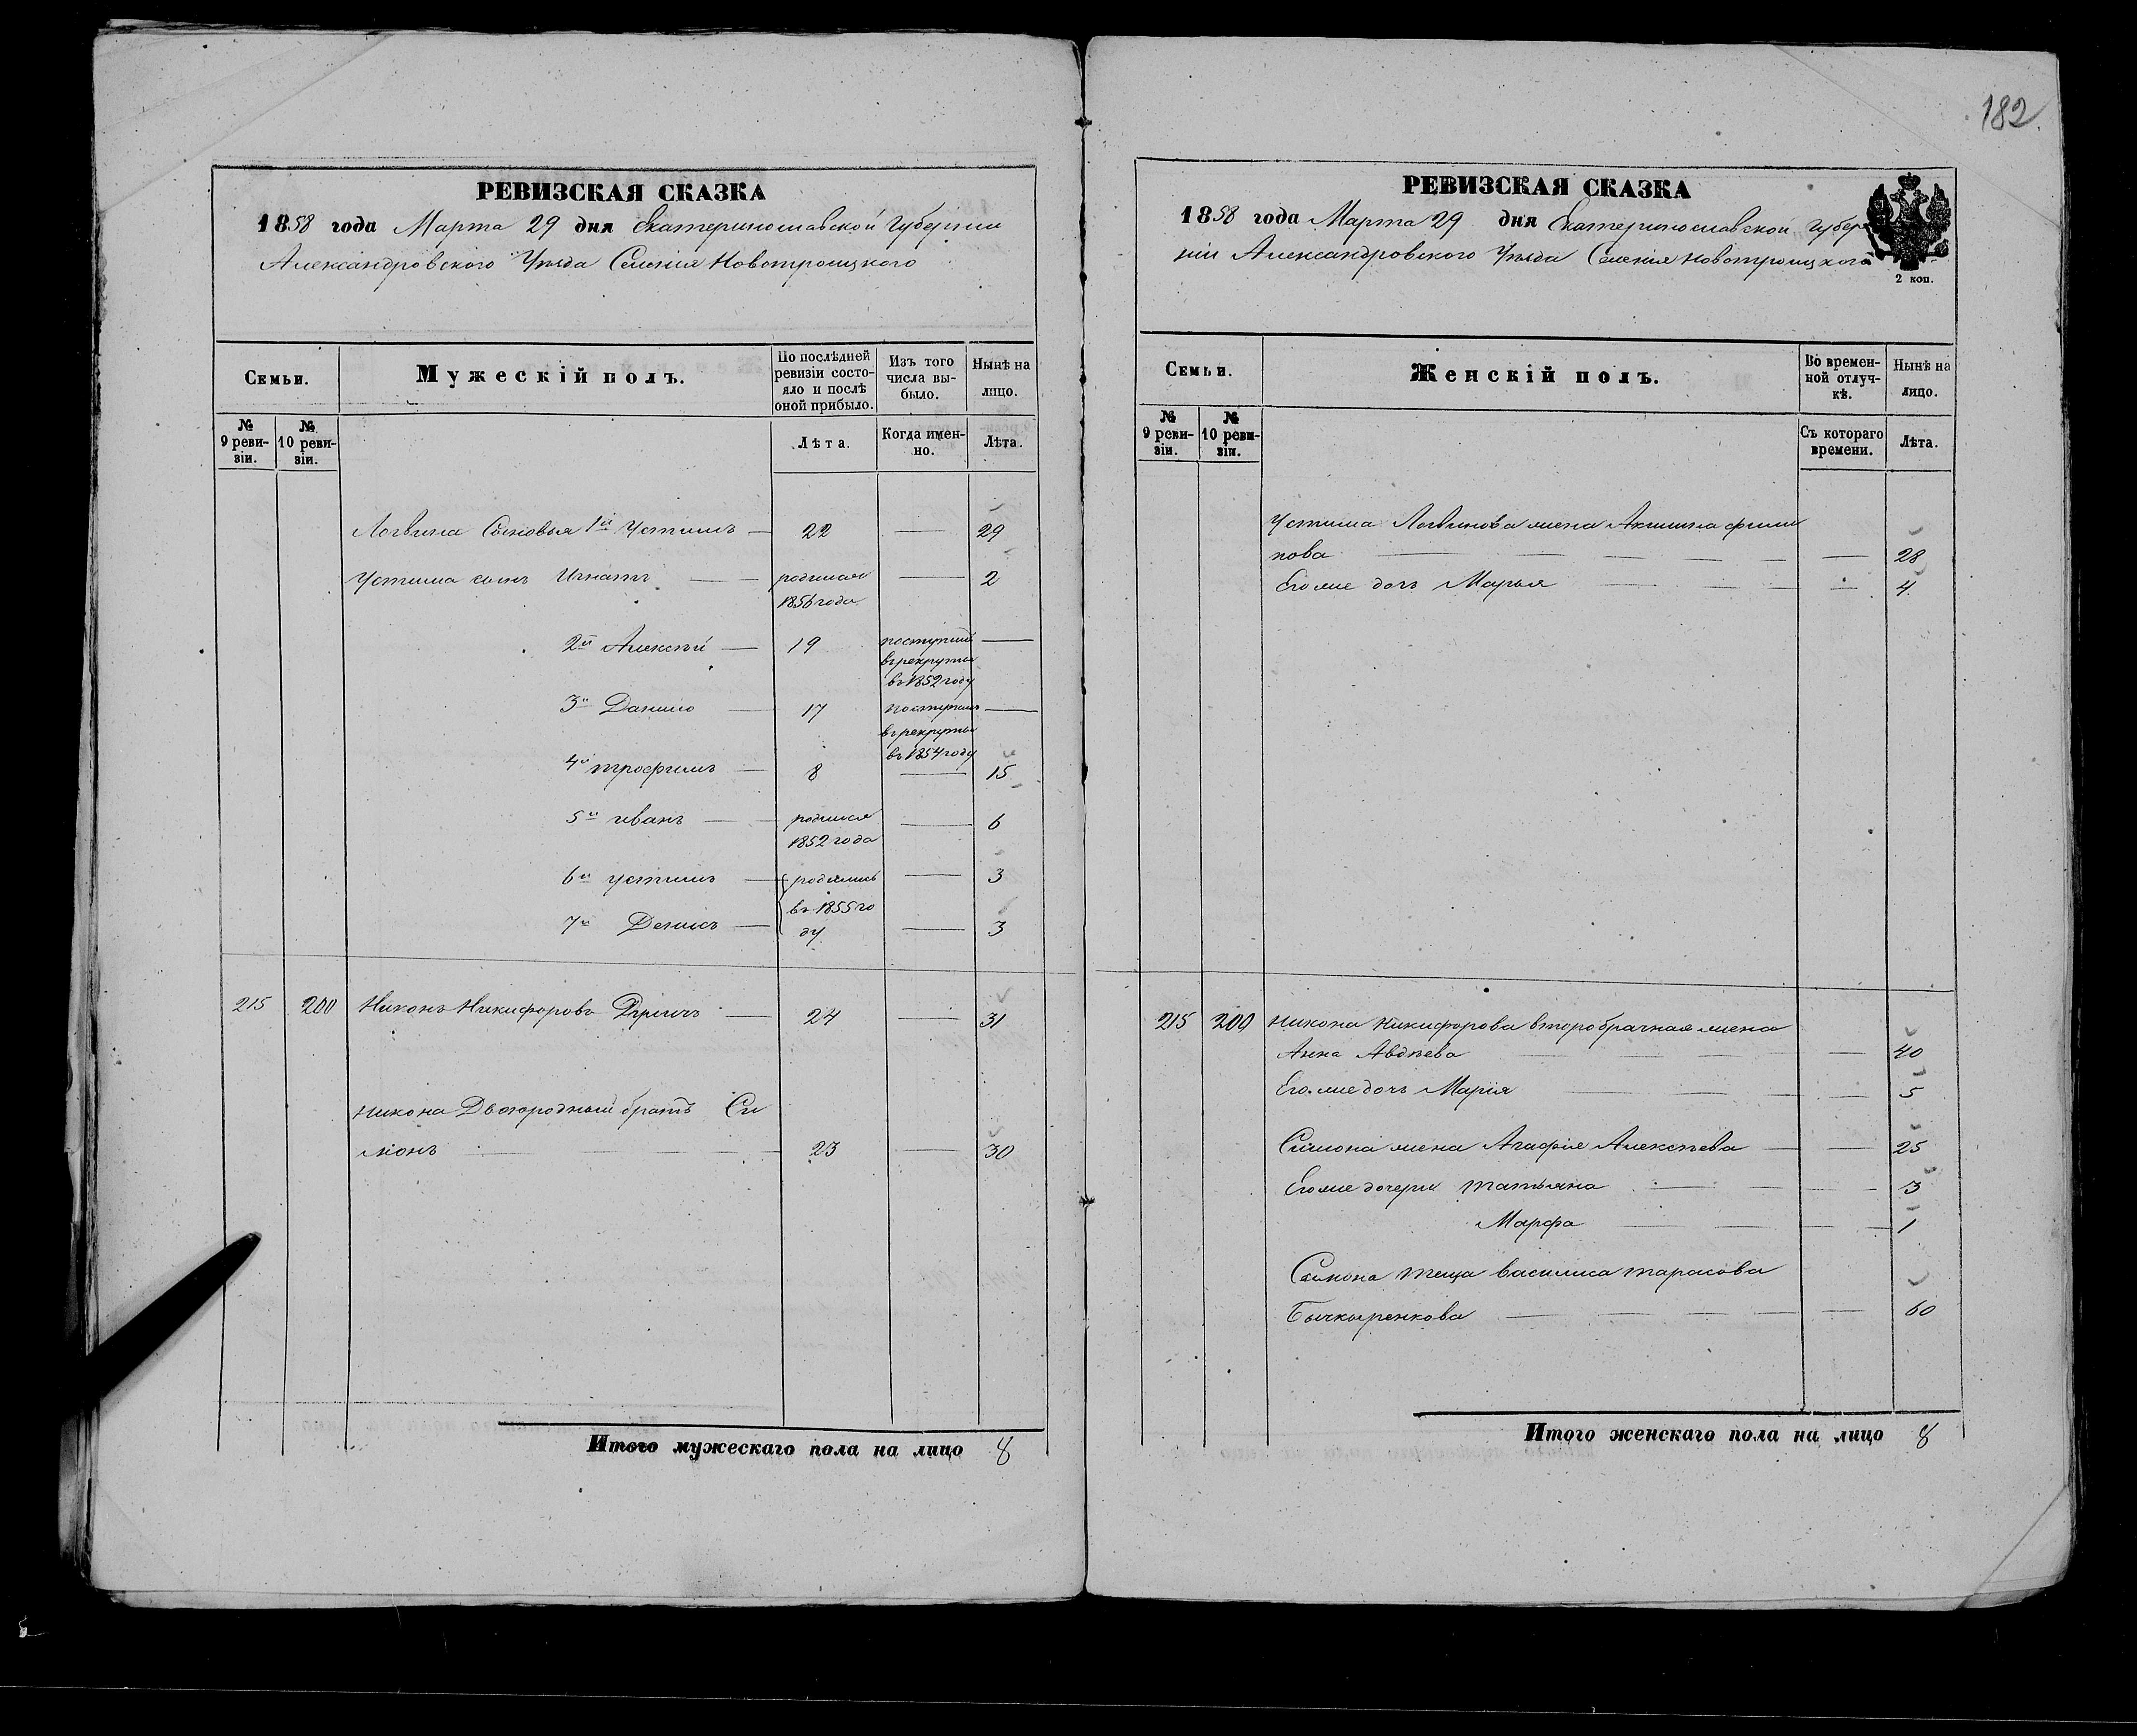 182.
РЕВИЗСКАЯ СКАЗКА
1858 года Марта 29 дня Екатеринославской Губерніи
Александровского Уѣзда Селенія Новотроицкого
Семьи.
Мужескій полъ.
По послѣдней
ревизіи состо-
яло и послѣ
оной прибыло.
Изъ того
числа вы-
было.
Нынѣ на
лицо.
№
9 реви-
зіи.
№
10 реви-
зіи.
Лѣта.
Когда имен-
но.
Лѣта.
Логвина Сыновья 1й Устимъ 22 29
Устима сынъ Игнатъ родился 2
1856 года
2й Алексѣй 19 поступилъ
въ рекруты
въ 1852 году
3й Данило 17 поступилъ
въ рекруты
въ 1854 году
4й трофимъ 8 15
5й иванъ родился 6
1852 года
6й устимъ родились 3
въ 1855 го
7й Денисъ ду 3
215 200 Никонъ Никифоровъ 24 31
Никона Двоюродный братъ Си
монъ 23 30
Итого мужескаго пола на лицо 8
РЕВИЗСКАЯ СКАЗКА
1858 года Марта 29 дня Екатеринославской Губер
ніи Александровского Уѣзда Селенія Новотроицкого
2 коп.
Семьи.
Женскій полъ.
Во времен-
ной отлуч-
кѣ.
Нынѣ на
лицо.
№
9 реви-
зіи.
№
10 реви-
зіи.
Съ котораго
времени.
Лѣта.
Устима Логвинова жена Акилина фили
пова 28
Его же дочь Марья 4
215 200 Никона Никифорова второбрачная жена
Анна Авдѣева 40
Его же дочь Марія 5
Симона жена Агафія Алексѣева 25
Его же дочери татьяна 3
Марфа 1
Симона теща василиса тарасова
Бычкаренкова 60
Итого женскаго пола на лицо 8